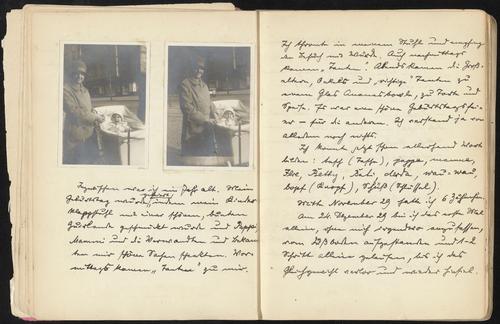 Inzwischen war ich ein Jahr alt. Mein
Geburtstag wurde gefeiert, indem mein Kinder-
klappstuhl mit einer schönen, bunten
Guirlande geschmückt wurde und Pappi,
Mammi und die Verwandten und Bekann-
ten mir schöne Sachen schenkten. Vor-
mittags kamen „Tanten" zu mir.
Ich thronte in meinem Stuhl und empfing
den Besuch mit Würde. Auch nachmittags
kamen „Tanten". Abends kamen die Groß-
eltern, Onkels und „richtige" Tanten zu
einem Glas Ananasbowle, zu Torte und
Speise. Es war eine schöne Geburtstagsfei-
er – für die anderen. Ich verstand ja von
alledem noch nichts.
Ich konnte jetzt schon allerhand Worte
bilden: taff (Taffe), pappa, mamma,
wau-wau,
kopf (Knopf), Schüß (Schüssel).
Mitte November 29 hatte ich 6 Zähnchen.
Am 24. Dezember 29 bin ich das erste Mal
allein, ohne mich irgendwo anzufassen,
vom Fußboden aufgestanden und 1-2
Schritt alleine gelaufen, bis ich das
Gleichgewicht verlor und wieder hinfiel.